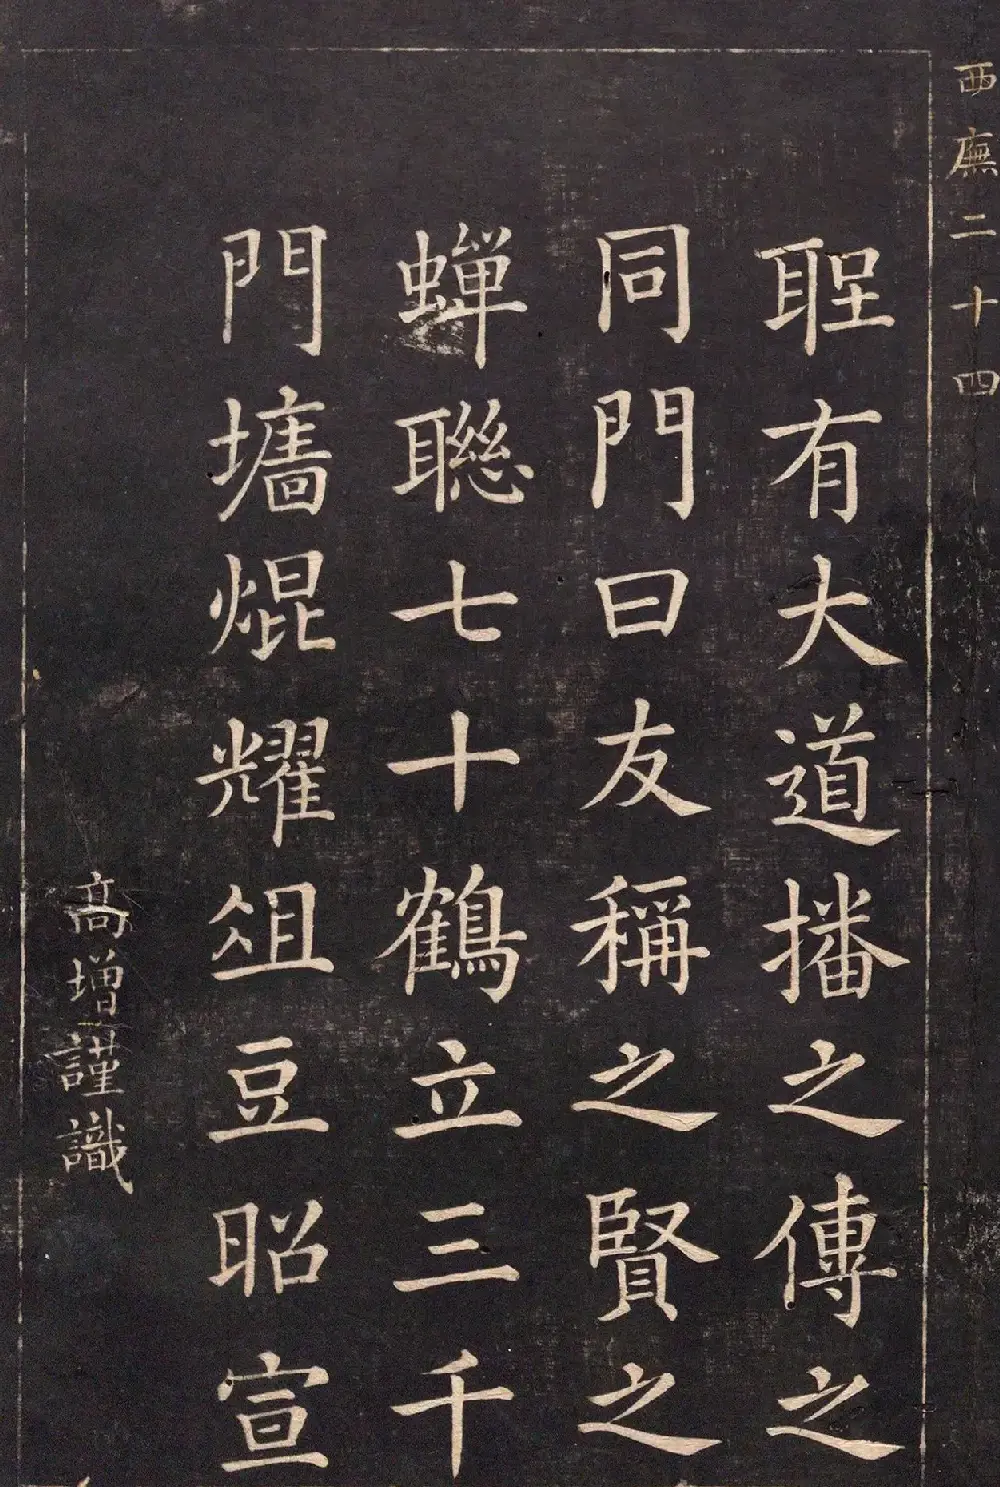 西廡二十四
聖有大道播之傳之
同門曰友稱之賢之
蟬聮七十鶴立三千
門墻焜耀俎豆昭宣
高增謹識